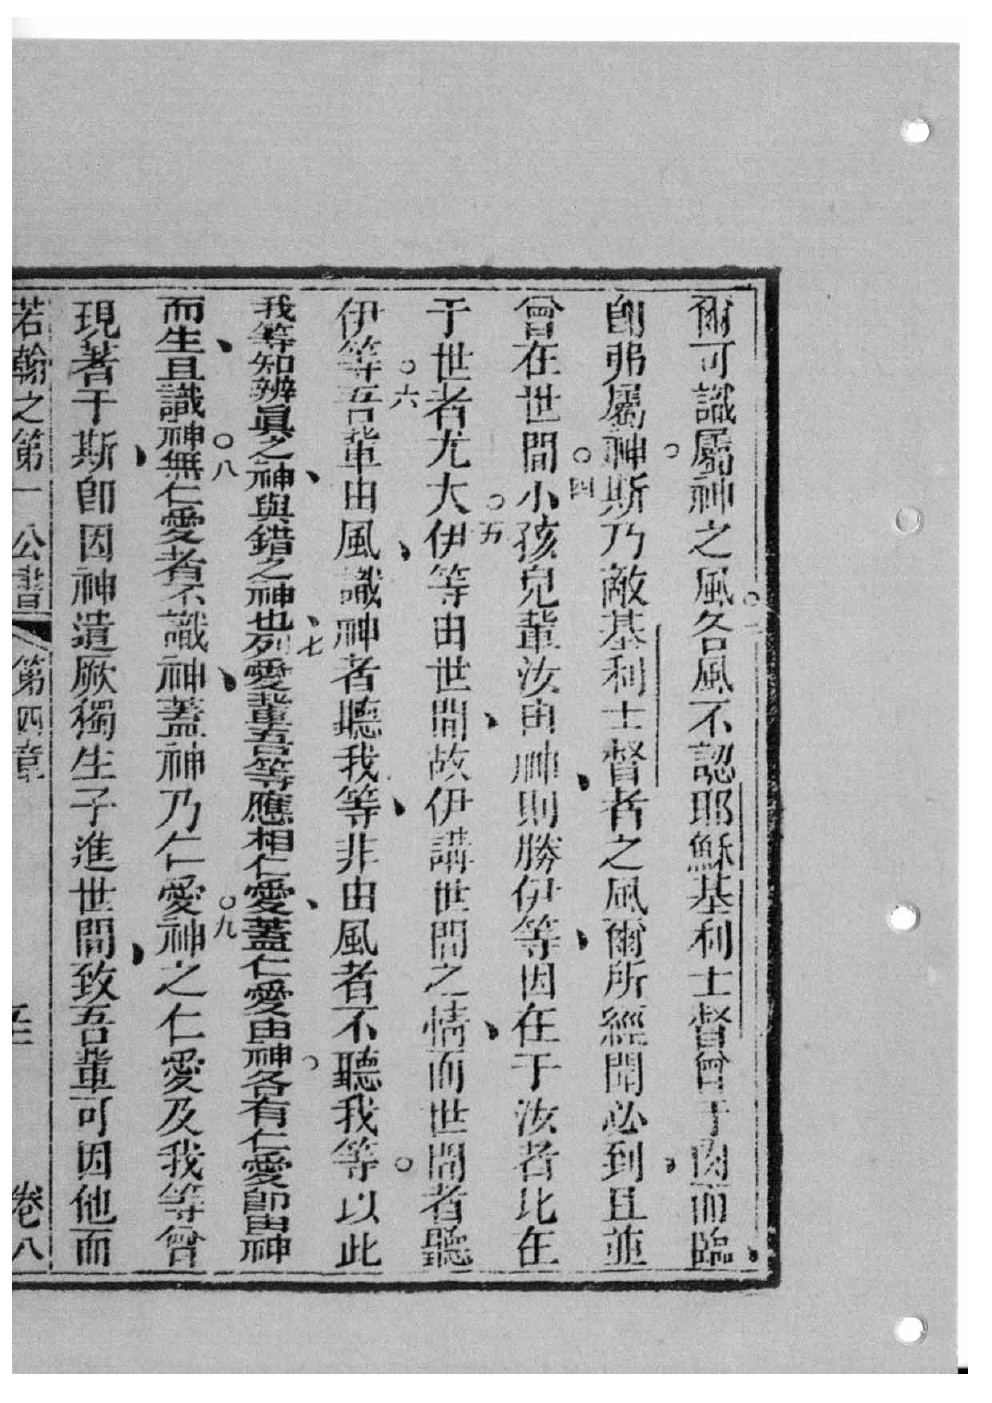 爾可識屬神之風各風不認耶穌基利士督曾于肉而臨
即弗屬神斯乃敵基利士督者之風爾所經聞必到且並
曾在世間小孩兒輩汝由神則勝伊等因在于汝者比在
于世者尤大伊等由世間故伊講世間之情而世間者聽
伊等吾輩由風識神者聽我等非由風者不聽我等以此
我等知辨眞之神與錯之神也列愛輩吾等應相仁愛蓋仁愛由神各有仁愛即由神
而生且識神無仁愛者不識神蓋神乃仁愛神之仁愛及我等曾
現著于斯即因神遣厥獨生子進世間致吾輩可因他而
若翰之第一公書 第四章 卷八
四
五
六
七
八
九